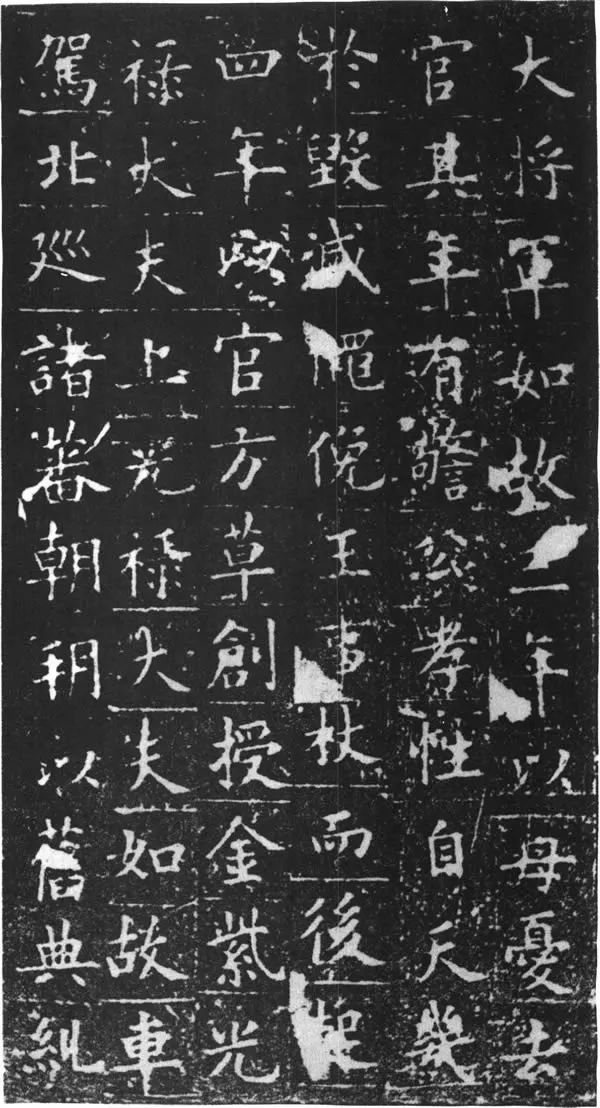 大將軍如故二年以母憂去
官其年有警公孝性自天幾
於毀滅僶俛王事杖而後起
四年改官方草創授金紫光
祿大夫上光祿大夫如故車
駕北廵諸蕃朝以舊典糾